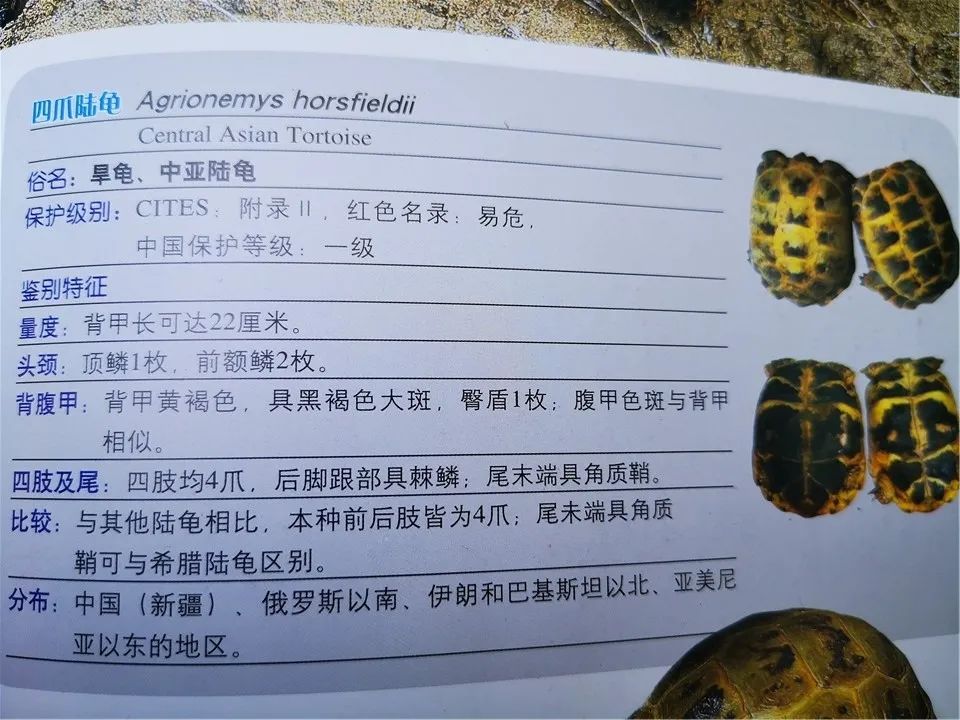 四爪陆龟 Agrionemys horsfieldii
Central Asian Tortoise
俗名：旱龟、中亚陆龟
保护级别：CITES：附录Ⅱ，红色名录：易危，
中国保护等级：一级
鉴别特征
量度：背甲长可达22厘米。
头颈：顶鳞1枚，前额鳞2枚。
背腹甲：背甲黄褐色，具黑褐色大斑，臀盾1枚；腹甲色斑与背甲
相似。
四肢及尾：四肢均4爪，后脚跟部具棘鳞；尾末端具角质鞘。
比较：与其他陆龟相比，本种前后肢皆为4爪；尾未端具角质
鞘可与希腊陆龟区别。
分布：中国（新疆）、俄罗斯以南、伊朗和巴基斯坦以北、亚美尼
亚以东的地区。